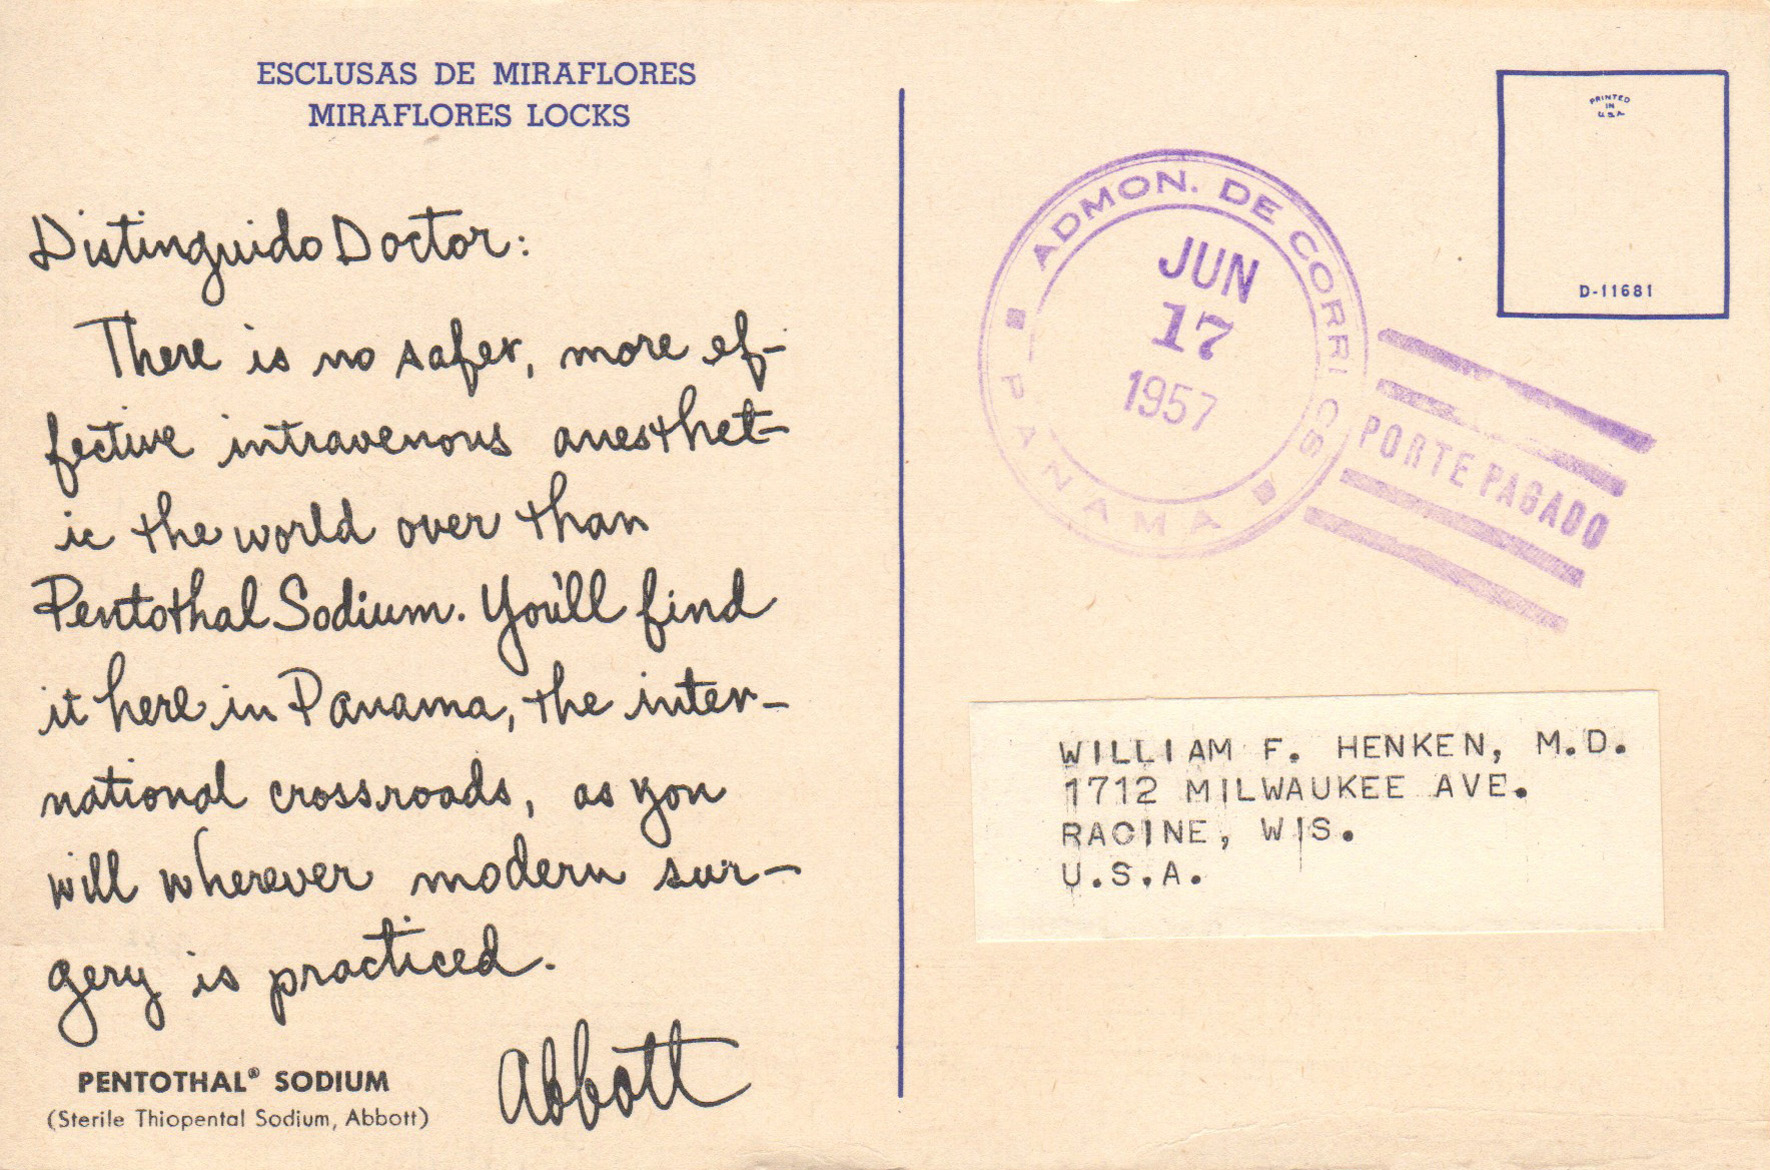 ESCLUSAS DE MIRAFLORES
MIRAFLORES LOCKS
Distinguido Doctor:
There is no safer, more ef-
fective intravenous anesthet-
ic the world over than
Pentothal Sodium. You'll find
it here in Panama, the inter-
national crossroads, as you
will wherever modern sur-
gery is practiced.
Abbott
PENTOTHAL® SODIUM
(Sterile Thiopental Sodium, Abbott)
PRINTED
IN
U.S.A.
D-11681
ADMON. DE CORRI CS
JUN
17
1957
PANAMA
PORTE PAGADO
WILLIAM F. HENKEN, M.D.
1712 MILWAUKEE AVE.
RACINE, WIS.
U.S.A.